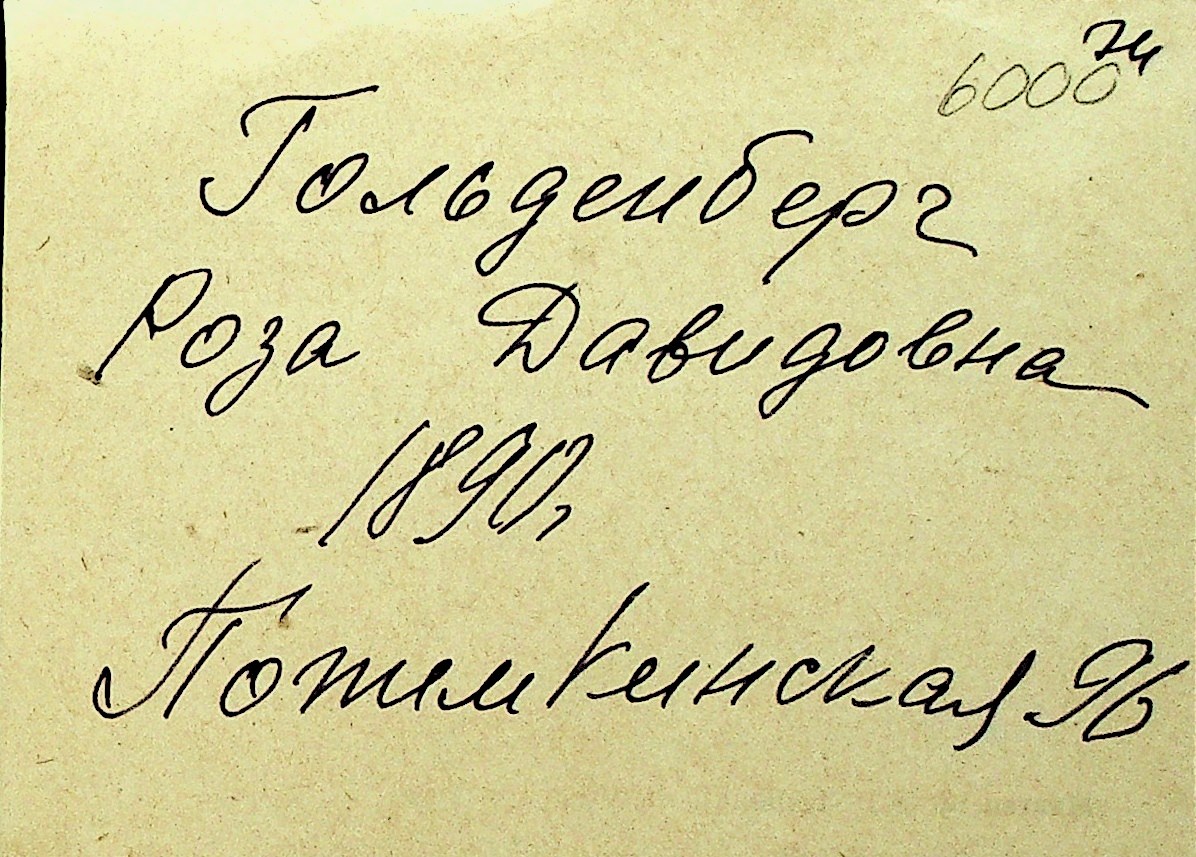 6000
Гольденберг
Роза Давидовна
1890,
Потемкинская 96